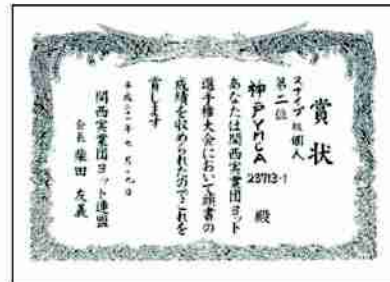 賞状
スナイプ級個人
第二位
神戸YMCA
23713-1
殿
あなたは関西実業団ヨット
選手権大会において頭書の
成績を収められたのでこれを
賞します
平成二十一年七月十九日
関西実業団ヨット連盟
会長 柴田 友義